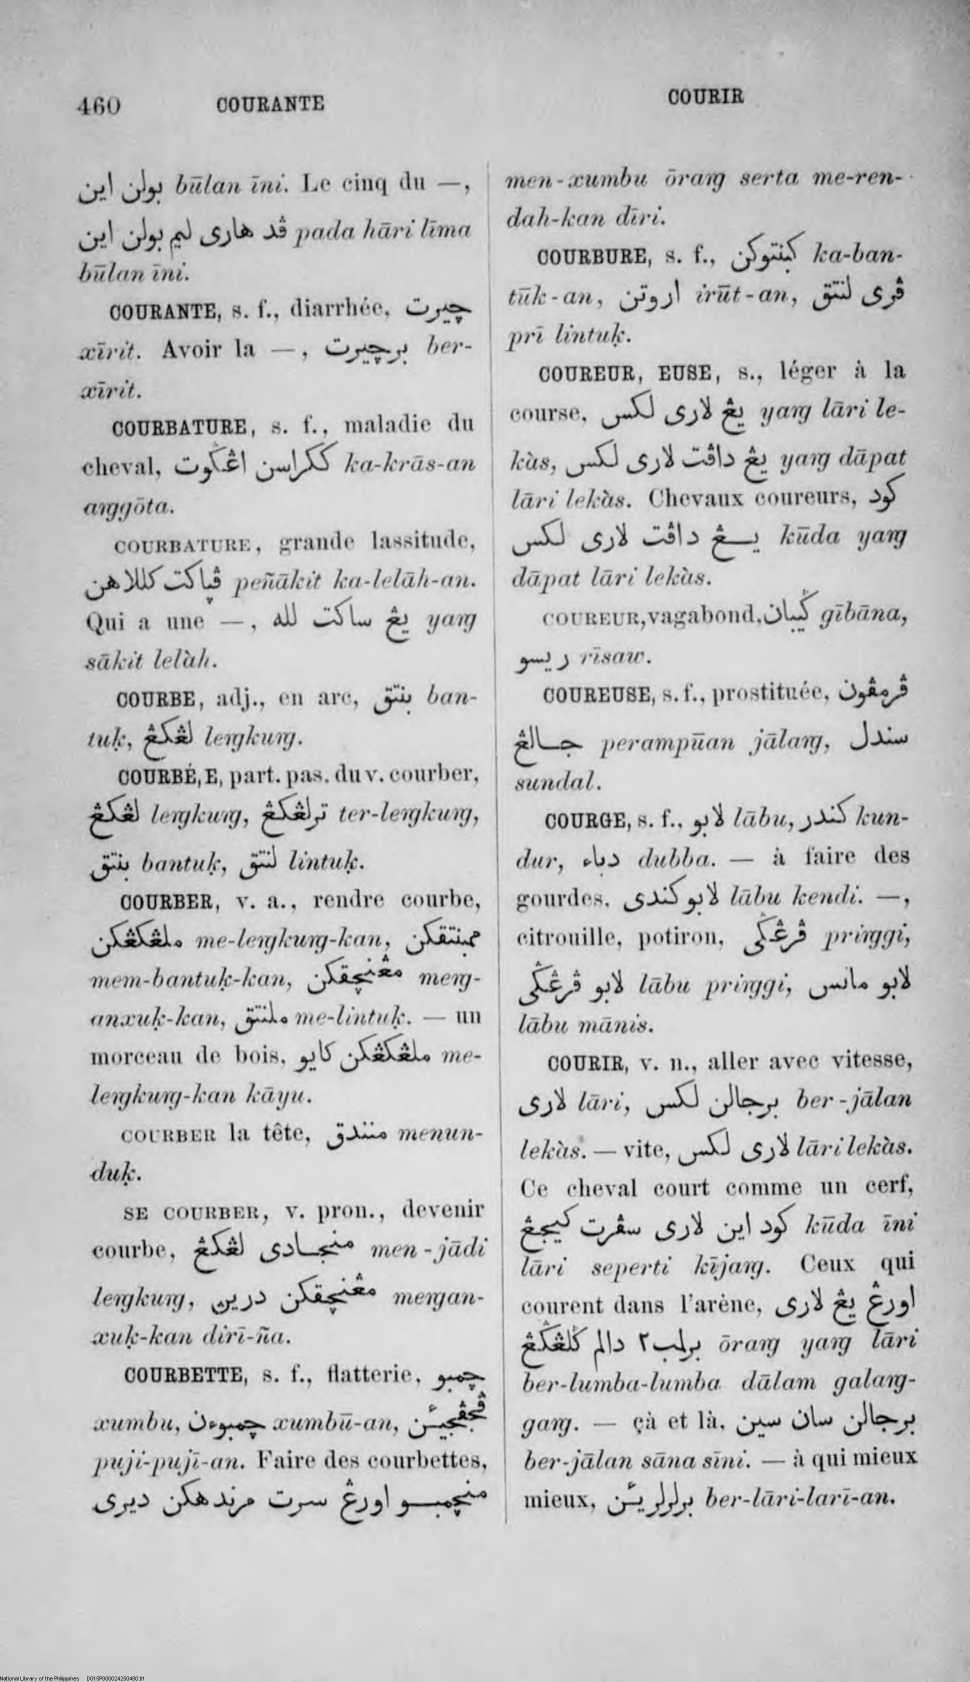 460 COURANTE
COURIR
بولن اين būlan īni. Le cinq du —,
ڤد هاری ليم بولن اين pada hāri līma
būlan īni.
COURANTE, s. f., diarrhée, چيرت
xīrit. Avoir la —, برچيرت ber-
xīrit.
COURBATURE, s. f., maladie du
cheval, ككراسن اڠݢوت ka-krās-an
aŋgōta.
COURBATURE, grande lassitude,
ڤپاكت كللاهن peñākit ka-lelāh-an.
Qui a une —, يڠ ساكت لله yaŋ
sākit lelàh.
COURBE, adj., en arc, بنتق ban-
tuḳ, لڠكڠ leŋkuŋ.
COURBÉ, E, part. pas. du v. courber,
لڠكڠ leŋkuŋ, ترلڠكڠ ter-leŋkuŋ,
بنتق bantuḳ, لنتق lintuḳ.
COURBER, v. a., rendre courbe,
ملڠكڠكن me-leŋkuŋ-kan, ممبنتقكن
mem-bantuḳ-kan, مڠنچقكن meŋ-
anxuḳ-kan, ملنتق me-lintuḳ. — un
morceau de bois, ملڠكڠكن كايو me-
leŋkuŋ-kan kāyu.
COURBER la tête, منندق menun-
duḳ.
SE COURBER, v. pron., devenir
courbe, منجادی لڠكڠ men-jādi
leŋkuŋ, مڠنچقكن درين meŋan-
xuḳ-kan dirī-ña.
COURBETTE, s. f., flatterie, چمبو
xumbu, چمبوءن xumbū-an, ڤجڤجيئن
puji-pujī-an. Faire des courbettes,
منچمبو اورڠ سرت مرندهكن ديری
men-xumbu ōraŋ serta me-ren-
dah-kan dīri.
COURBURE, s. f., كبنتوكن ka-ban-
tūk-an, اروتن irūt-an, ڤری لنتق
prī lintuḳ.
COUREUR, EUSE, s., léger à la
course, يڠ لاری لكس yaŋ lāri le-
kàs, يڠ داڤت لاری لكس yaŋ dāpat
lāri lekàs. Chevaux coureurs, كود
يڠ داڤت لاری لكس kūda yaŋ
dāpat lāri lekàs.
COUREUR, vagabond, ݢيبان gībāna,
ريسو rīsaw.
COUREUSE, s. f., prostituée, ڤرمڤون
جالڠ perampūan jālaŋ, سندل
sundal.
COURGE, s. f., لابو lābu, كندر kun-
dur, دباء dubba. — à faire des
gourdes, لابو كندی lābu kendi. —,
citrouille, potiron, ڤرڠݢی priŋgi,
لابو ڤرڠݢی lābu priŋgi, لابو مانس
lābu mānis.
COURIR, v. n., aller avec vitesse,
لاری lāri, برجالن لكس ber-jālan
lekàs. — vite, لاری لكس lāri lekàs.
Ce cheval court comme un cerf,
كود اين لاری سڤرت كيجڠ kūda īni
lāri seperti kījaŋ. Ceux qui
courent dans l'arène, اورڠ يڠ لاری
برلمب٢ دالم ݢلڠݢڠ ōraŋ yaŋ lāri
ber-lumba-lumba dālam galaŋ-
gaŋ. — çà et là, برجالن سان سين
ber-jālan sāna sīni. — à qui mieux
mieux, برلرلريئن ber-lāri-larī-an.
National Library of the Philippines